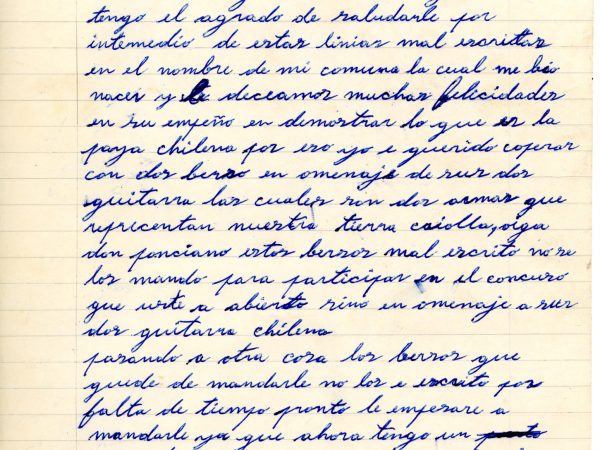 tengo el agrado de saludarle por
intemedio de estas linias mal escrittas
en el nombre de mi comuna la cual me bio
nacer y le deceamos muchas felicidades
en su empeño en demostrar lo que es la
paya chilena por eso yo e querido coperar
con dos berso en omenaje de sus dos
guitarra las cuales son dos armas que
representan nuestra tierra criolla, oiga
don ponciano estos bersos mal escrito no se
los mando para participar en el concurso
que uste a abierto sino en omenaje a sus
dos guitarra chilena
pasando a otra cosa los bersos que
quede de mandarle no los e escrito por
falta de tiempo pronto le empesare a
mandarle ya que ahora tengo un